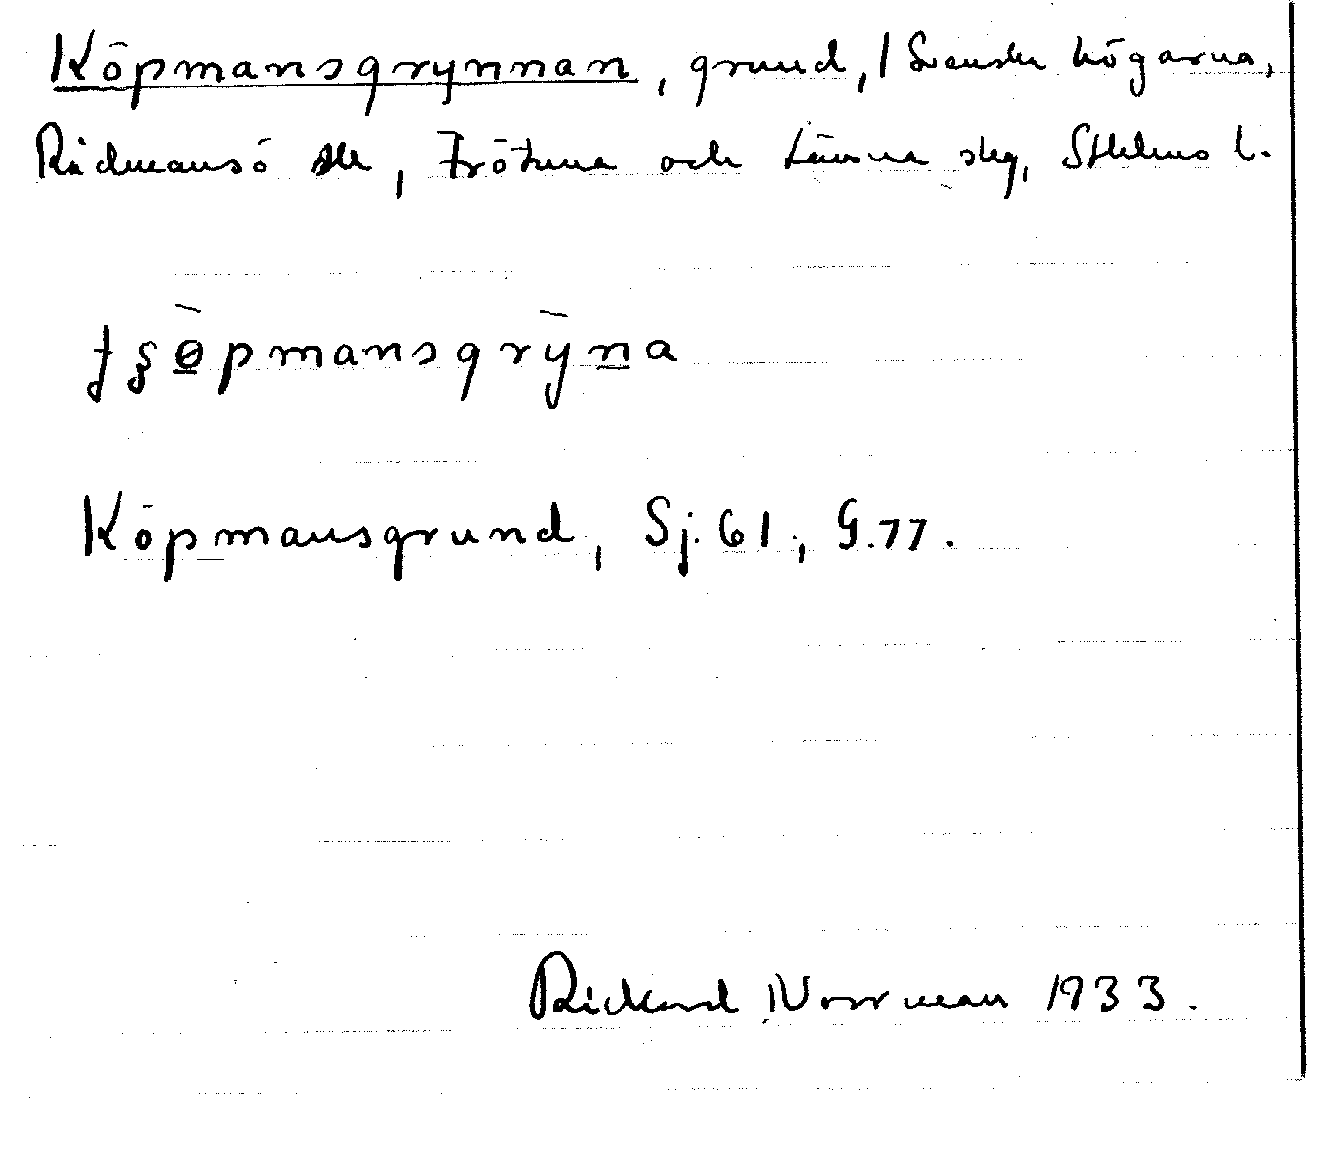 Köpmansgrynnan, grund, / Svenska högarna,
Rådmansö sk, Frötuna och Länna skg, Sthlms l.
Köpmansgrund, Sj. 61., G.77.
Rickard Norrman 1933.